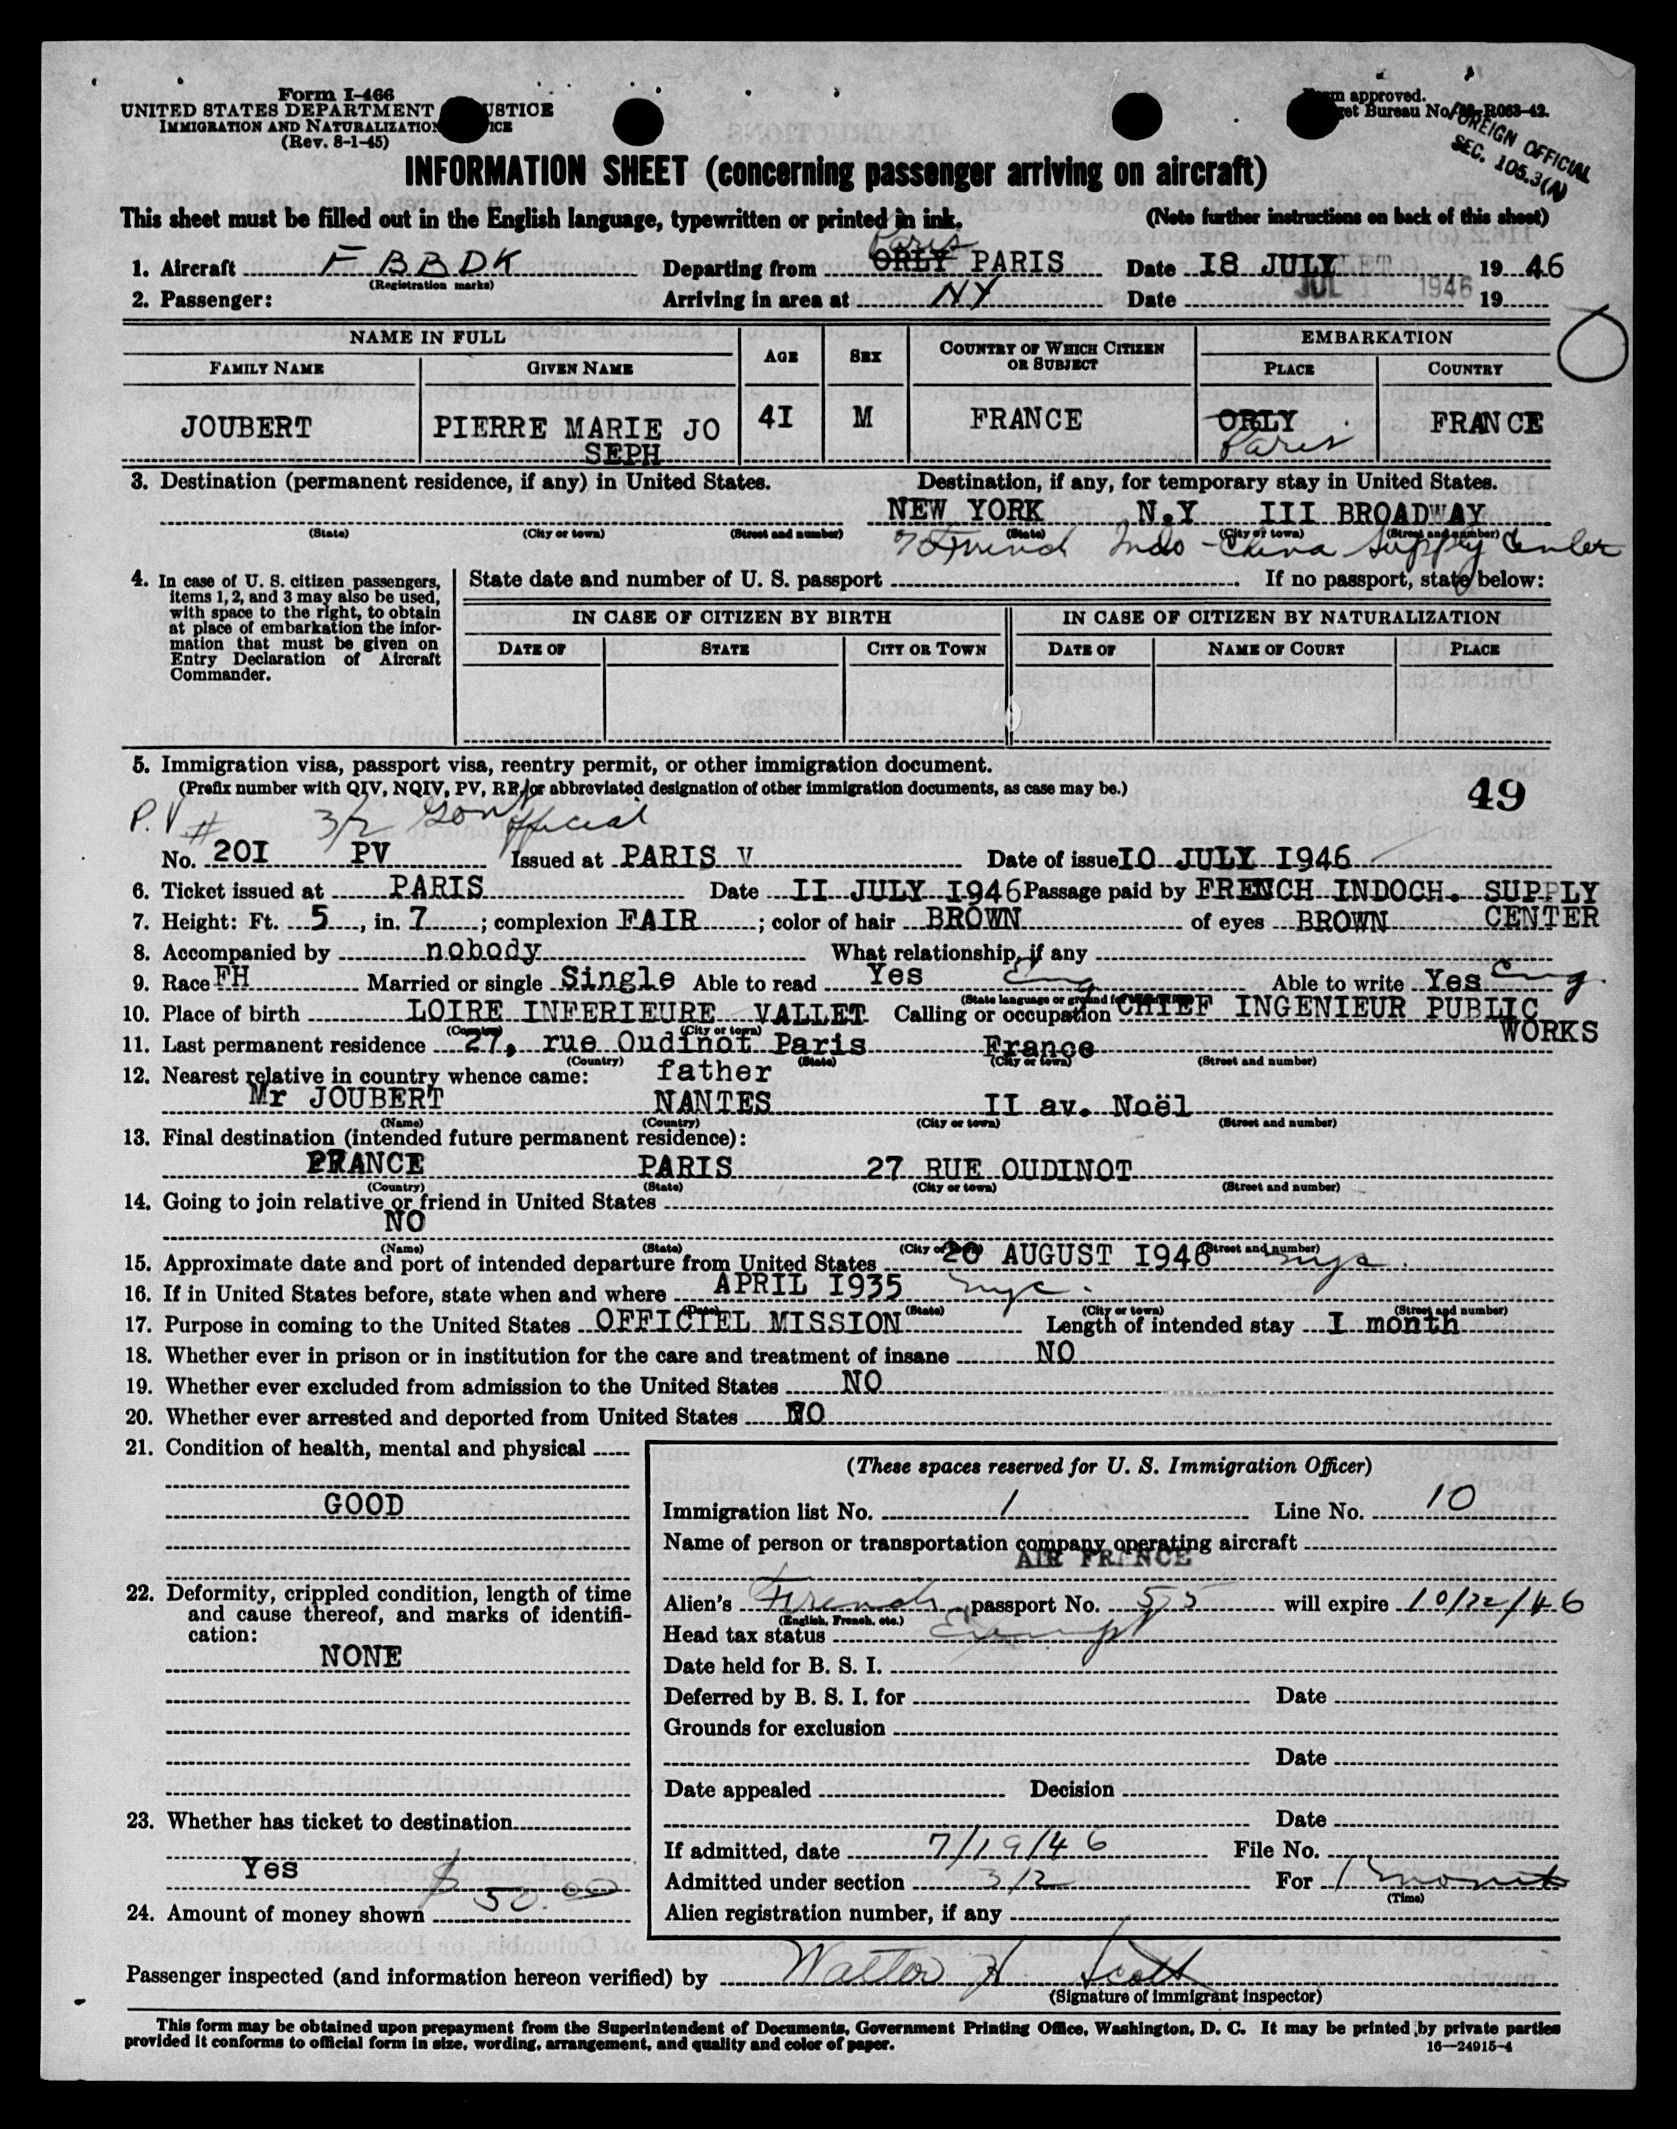 Form I-466
UNITED STATES DEPARTMENT USTICE
IMMIGRATION AND NATURALIZATION ICE
(Rev. 8-1-45)
Form approved.
Budget Bureau No. 43-R063-42.
FOREIGN OFFICIAL
SEC. 105.3(A)
INFORMATION SHEET (concerning passenger arriving on aircraft)
This sheet must be filled out in the English language, typewritten or printed in ink. (Note further instructions on back of this sheet)
Paris
1. Aircraft F BBDK Departing from ORLY PARIS Date 18 JULY 19 46
(Registration marks)
2. Passenger: Arriving in area at NY Date JUL 19 1946 19
NAME IN FULL AGE SEX COUNTRY OF WHICH CITIZEN OR SUBJECT EMBARKATION
FAMILY NAME GIVEN NAME PLACE COUNTRY
JOUBERT PIERRE MARIE JO 4I M FRANCE ORLY FRANCE
SEPH Paris
3. Destination (permanent residence, if any) in United States. Destination, if any, for temporary stay in United States.
NEW YORK N.Y III BROADWAY
(State) (City or town) (Street and number) (State) (City or town) (Street and number)
% French Indo-China Supply Center
4. In case of U. S. citizen passengers, items 1, 2, and 3 may also be used, with space to the right, to obtain at place of embarkation the information that must be given on Entry Declaration of Aircraft Commander.
State date and number of U. S. passport If no passport, state below:
IN CASE OF CITIZEN BY BIRTH IN CASE OF CITIZEN BY NATURALIZATION
DATE OF STATE CITY OR TOWN DATE OF NAME OF COURT PLACE
5. Immigration visa, passport visa, reentry permit, or other immigration document.
(Prefix number with QIV, NQIV, PV, RP, or abbreviated designation of other immigration documents, as case may be.) 49
P.V # 3/2 Gov't Official
No. 20I PV Issued at PARIS V Date of issue IO JULY I946
6. Ticket issued at PARIS Date II JULY I946 Passage paid by FRENCH INDOCH. SUPPLY
7. Height: Ft. 5, in. 7; complexion FAIR; color of hair BROWN of eyes BROWN CENTER
8. Accompanied by nobody What relationship, if any
9. Race FH Married or single Single Able to read Yes Eng Able to write Yes Eng
(State language or ground for exemption)
10. Place of birth LOIRE INFERIEURE VALLET Calling or occupation CHIEF INGENIEUR PUBLIC
(Country) (City or town) WORKS
11. Last permanent residence 27, rue Oudinot Paris France
(Country) (State) (City or town) (Street and number)
12. Nearest relative in country whence came: father
Mr JOUBERT NANTES II av. Noël
(Name) (Country) (City or town) (Street and number)
13. Final destination (intended future permanent residence):
FRANCE PARIS 27 RUE OUDINOT
(Country) (State) (City or town) (Street and number)
14. Going to join relative or friend in United States
NO
(Name) (State) (City or town) (Street and number)
15. Approximate date and port of intended departure from United States 20 AUGUST I946 nyc.
16. If in United States before, state when and where APRIL I935 nyc.
(Date) (State) (City or town) (Street and number)
17. Purpose in coming to the United States OFFICIEL MISSION Length of intended stay I month
18. Whether ever in prison or in institution for the care and treatment of insane NO
19. Whether ever excluded from admission to the United States NO
20. Whether ever arrested and deported from United States NO
21. Condition of health, mental and physical
GOOD
22. Deformity, crippled condition, length of time and cause thereof, and marks of identification:
NONE
23. Whether has ticket to destination
Yes
24. Amount of money shown $ 50.00
(These spaces reserved for U. S. Immigration Officer)
Immigration list No. 1 Line No. 10
Name of person or transportation company operating aircraft
AIR FRANCE
Alien's French passport No. 55 will expire 10/22/46
(English, French, etc.)
Head tax status Exempt
Date held for B. S. I.
Deferred by B. S. I. for Date
Grounds for exclusion
Date
Date appealed Decision
Date
If admitted, date 7/19/46 File No.
Admitted under section 3/2 For 1 month
(Time)
Alien registration number, if any
Passenger inspected (and information hereon verified) by Walter H Scott
(Signature of immigrant inspector)
This form may be obtained upon prepayment from the Superintendent of Documents, Government Printing Office, Washington, D. C. It may be printed by private parties
provided it conforms to official form in size, wording, arrangement, and quality and color of paper. 16—24915-4